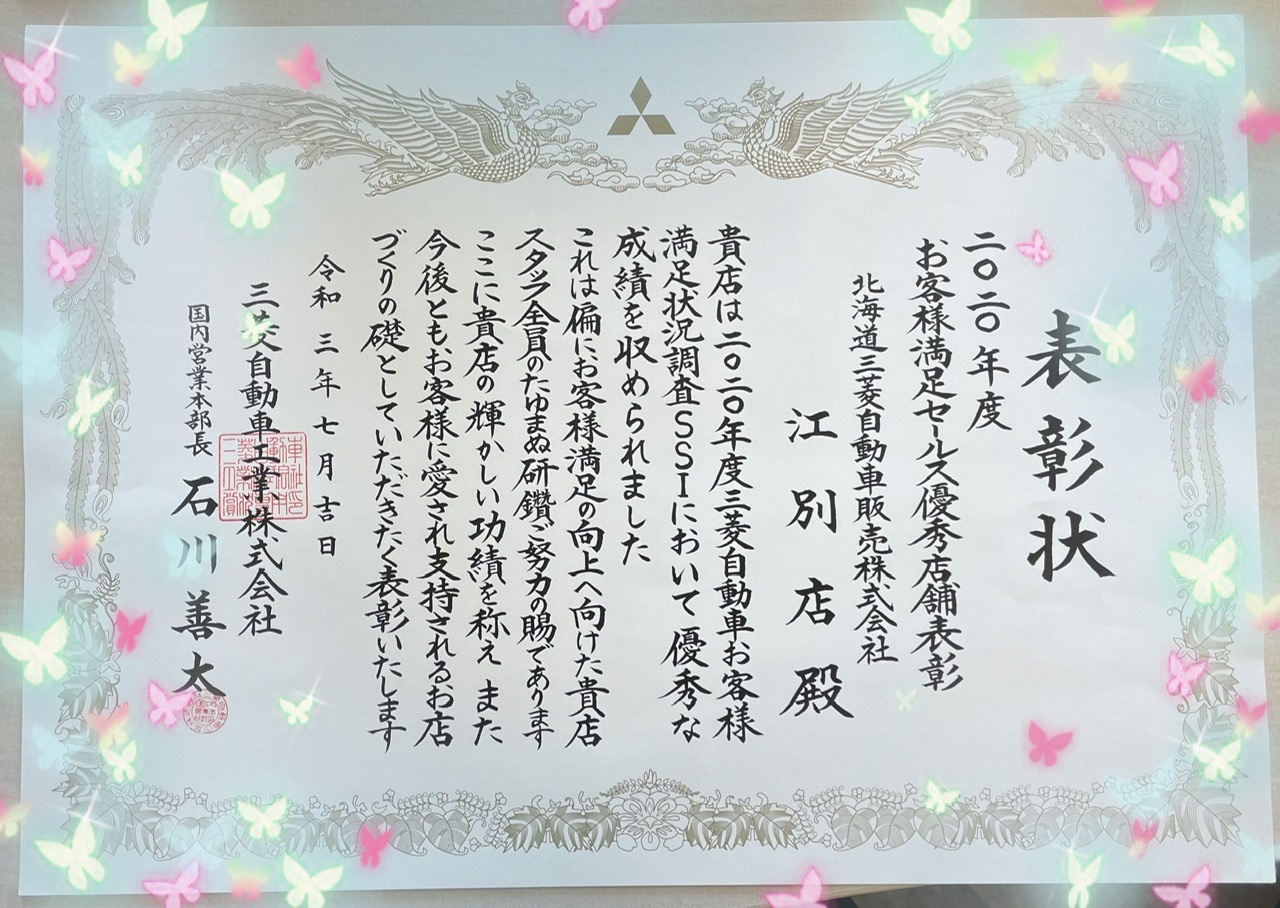 表彰状
二〇二〇年度
お客様満足セールス優秀店舗表彰
北海道三菱自動車販売株式会社
江別店殿
貴店は二〇二〇年度三菱自動車お客様
満足状況調査SSIにおいて優秀な
成績を収められました
これは偏にお客様満足の向上へ向けた貴店
スタッフ全員のたゆまぬ研鑽、ご努力の賜であります
ここに貴店の輝かしい功績を称え また
今後ともお客様に愛され支持されるお店
づくりの礎としていただきたく表彰いたします
令和三年七月吉日
三菱自動車工業株式会社
国内営業本部長 石川善太